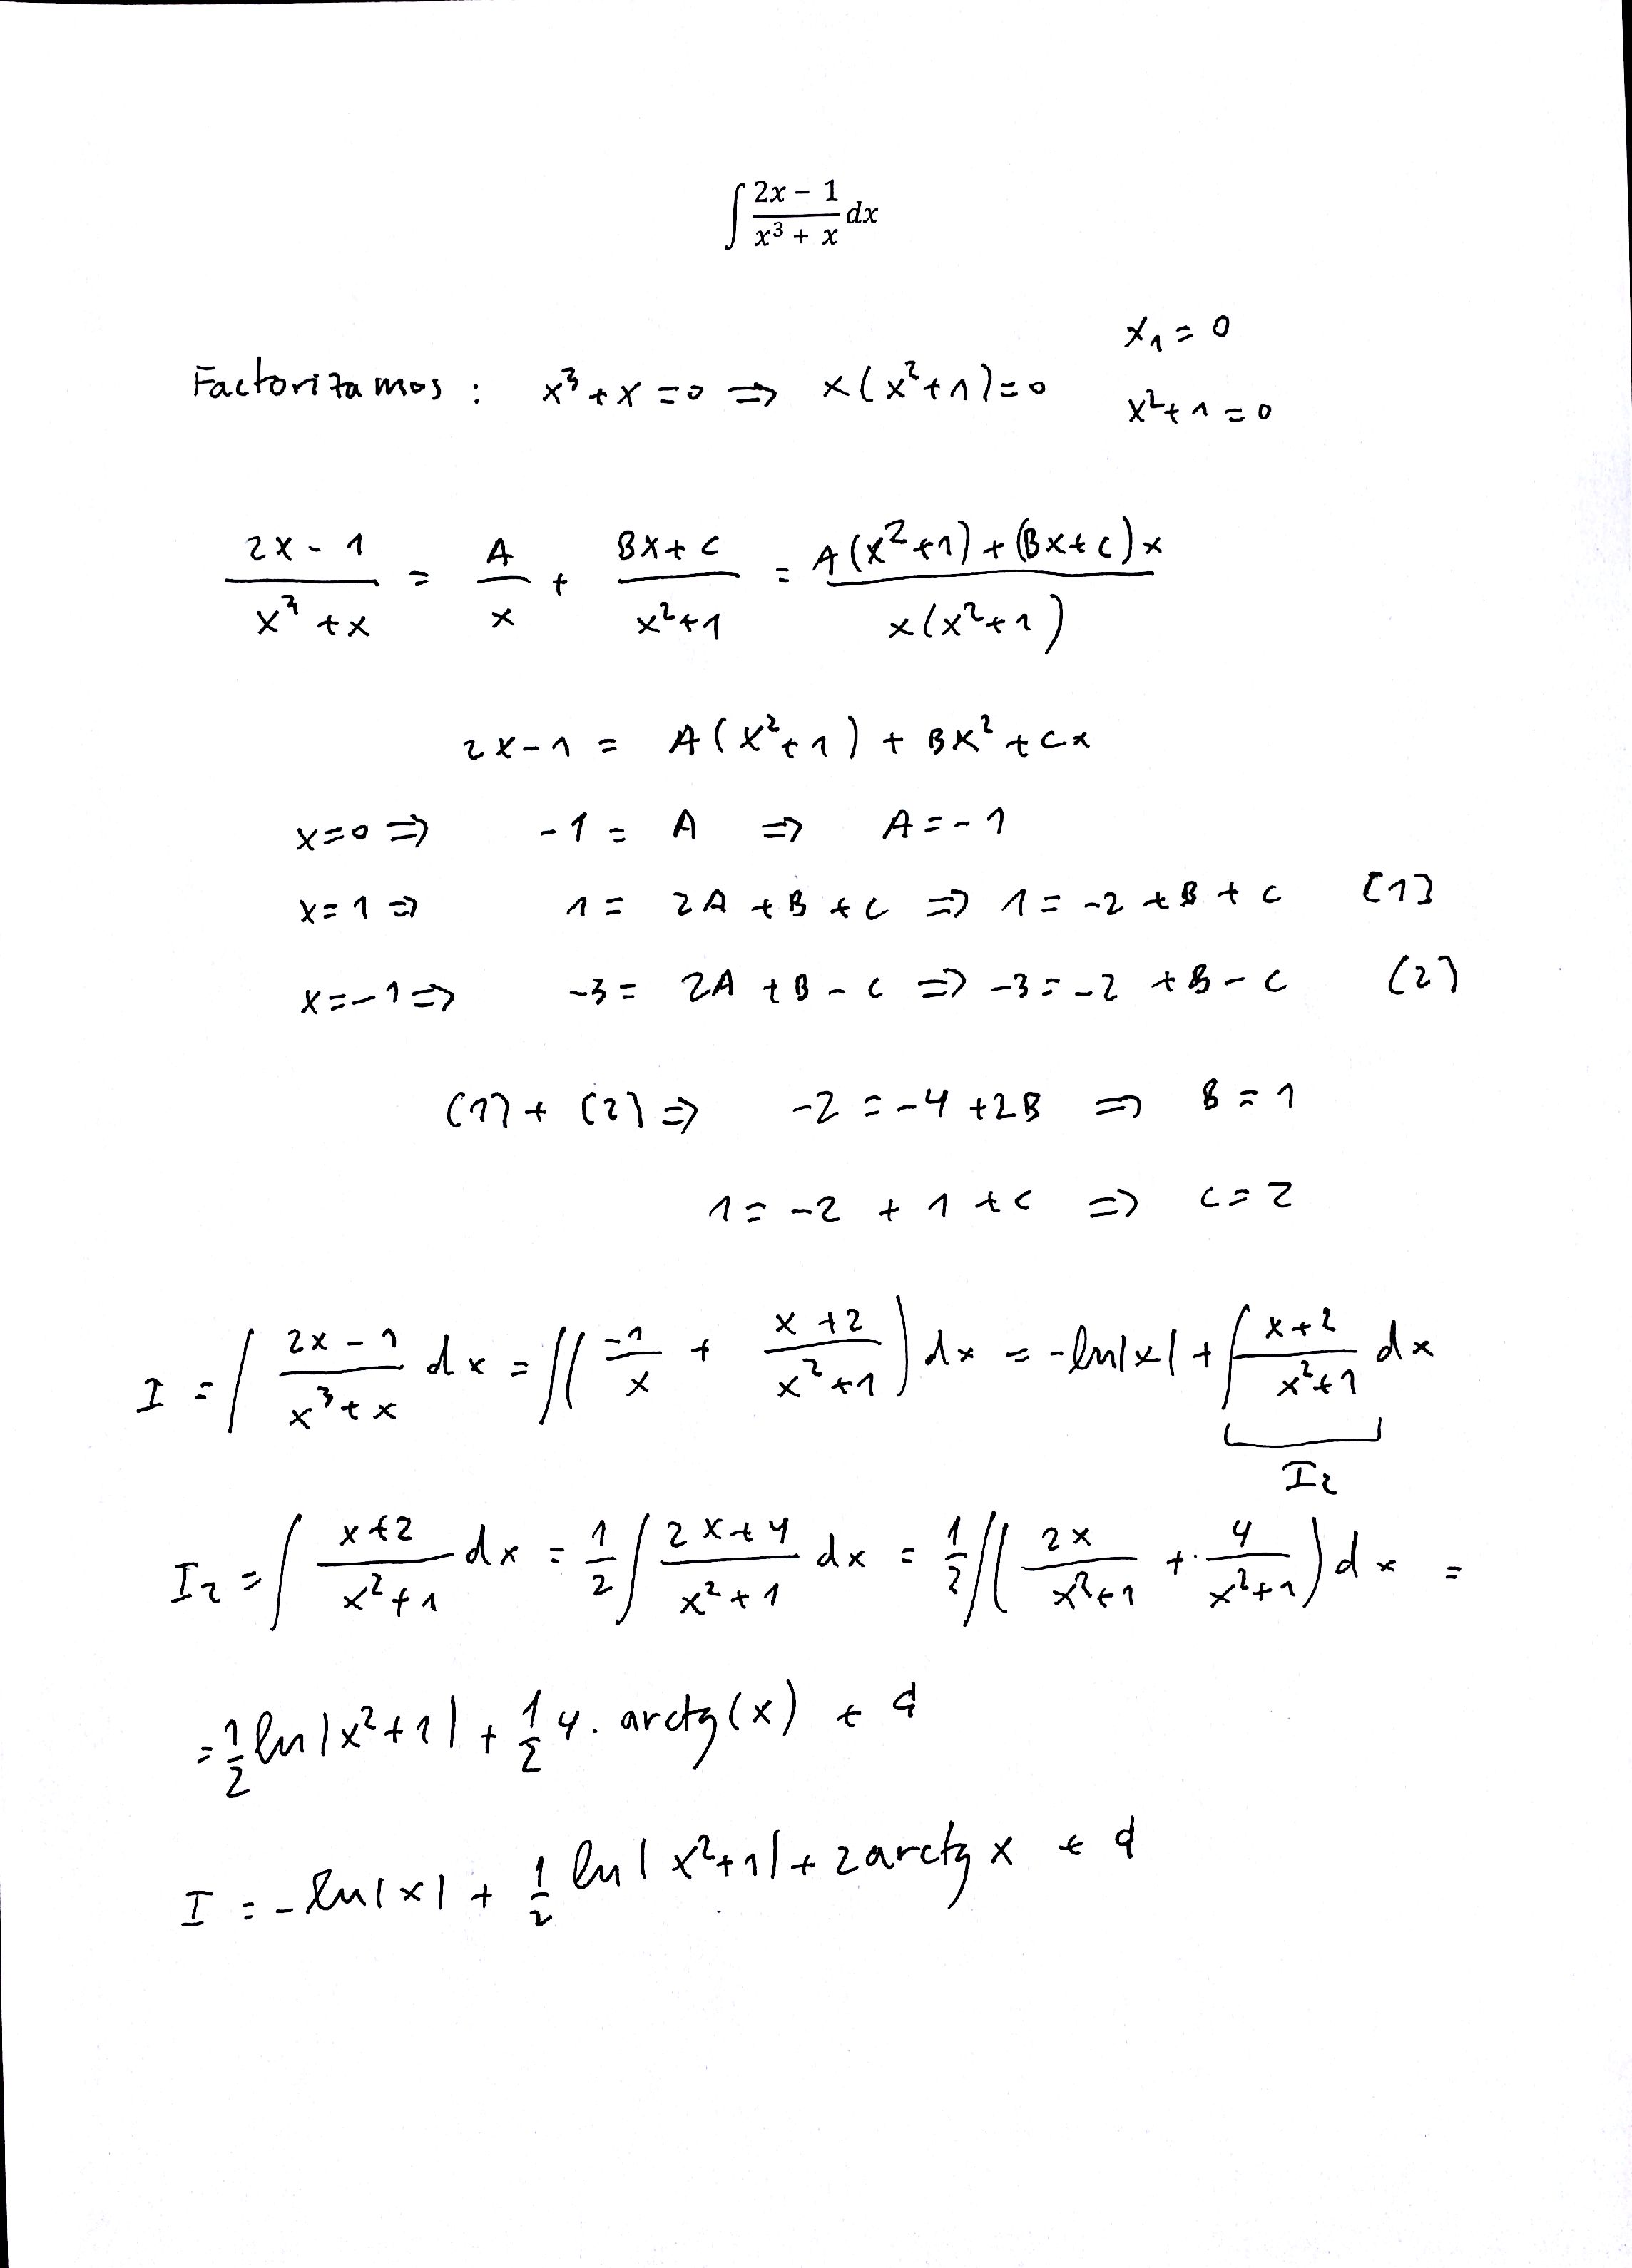 ∫ (2x − 1)/(x³ + x) dx
x₁ = 0
Factorizamos : x³ + x = 0 ⇒ x(x² + 1) = 0
x² + 1 = 0
(2x - 1)/(x³ + x) = A/x + (Bx + C)/(x² + 1) = (A(x² + 1) + (Bx + C)x)/(x(x² + 1))
2x - 1 = A(x² + 1) + Bx² + Cx
x = 0 ⇒ -1 = A ⇒ A = -1
x = 1 ⇒ 1 = 2A + B + C ⇒ 1 = -2 + B + C (1)
x = -1 ⇒ -3 = 2A + B - C ⇒ -3 = -2 + B - C (2)
(1) + (2) ⇒ -2 = -4 + 2B ⇒ B = 1
1 = -2 + 1 + C ⇒ C = 2
I = ∫ (2x - 1)/(x³ + x) dx = ∫(-1/x + (x + 2)/(x² + 1)) dx = -ln|x| + ∫ (x + 2)/(x² + 1) dx
I₂
I₂ = ∫ (x + 2)/(x² + 1) dx = 1/2 ∫ (2x + 4)/(x² + 1) dx = 1/2 ∫(2x/(x² + 1) + 4/(x² + 1)) dx =
= 1/2 ln|x² + 1| + 1/2 4 · arctg(x) + d
I = -ln|x| + 1/2 ln|x² + 1| + 2 arctg x + d